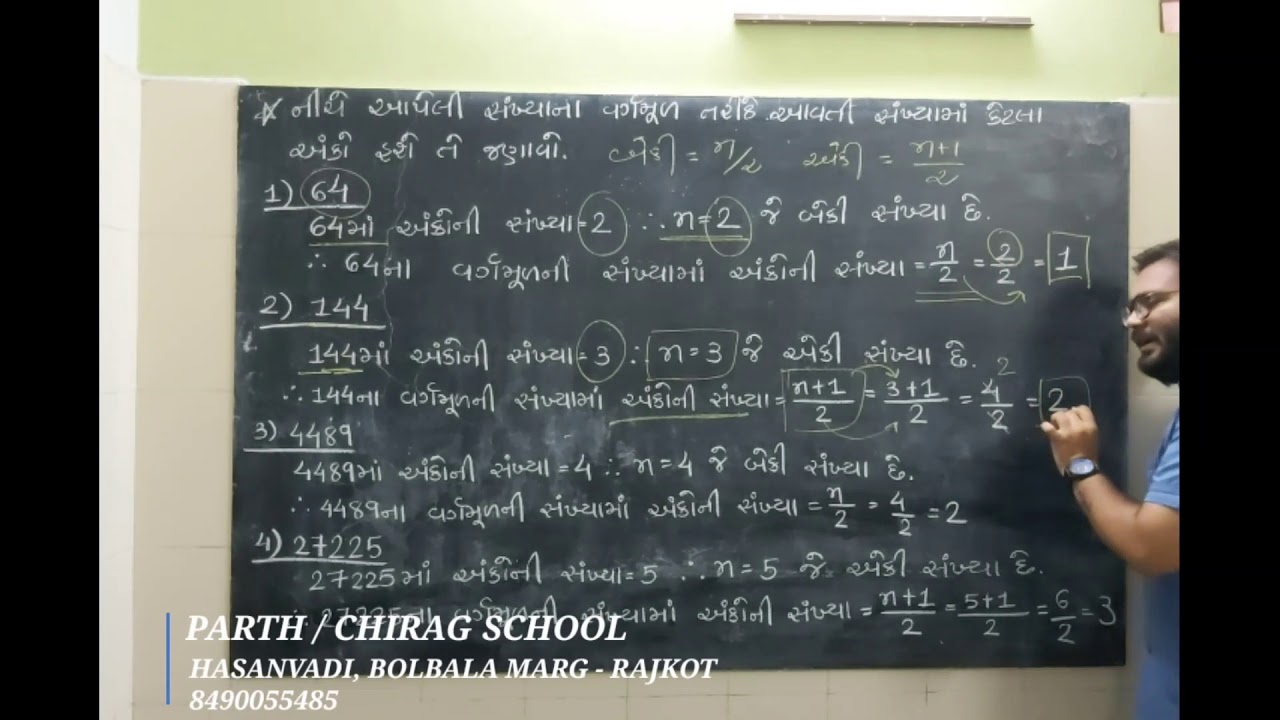 * નીચે આપેલી સંખ્યાના વર્ગમૂળ તરીકે આવતી સંખ્યામાં કેટલા
અંકો હશે તે જણાવો. બેકી = n/2 એકી = n+1/2
1) 64
64માં અંકોની સંખ્યા = 2 ∴ n = 2 જે બેકી સંખ્યા છે.
∴ 64ના વર્ગમૂળની સંખ્યામાં અંકોની સંખ્યા = n/2 = 2/2 = 1
2) 144
144માં અંકોની સંખ્યા = 3 ∴ n = 3 જે એકી સંખ્યા છે.
∴ 144ના વર્ગમૂળની સંખ્યામાં અંકોની સંખ્યા = n+1/2 = 3+1/2 = 4/2 2 = 2
3) 4489
4489માં અંકોની સંખ્યા = 4 ∴ n = 4 જે બેકી સંખ્યા છે.
∴ 4489ના વર્ગમૂળની સંખ્યામાં અંકોની સંખ્યા = n/2 = 4/2 = 2
4) 27225
27225માં અંકોની સંખ્યા = 5 ∴ n = 5 જે એકી સંખ્યા છે.
∴ 27225ના વર્ગમૂળની સંખ્યામાં અંકોની સંખ્યા = n+1/2 = 5+1/2 = 6/2 = 3
PARTH / CHIRAG SCHOOL
HASANVADI, BOLBALA MARG - RAJKOT
8490055485